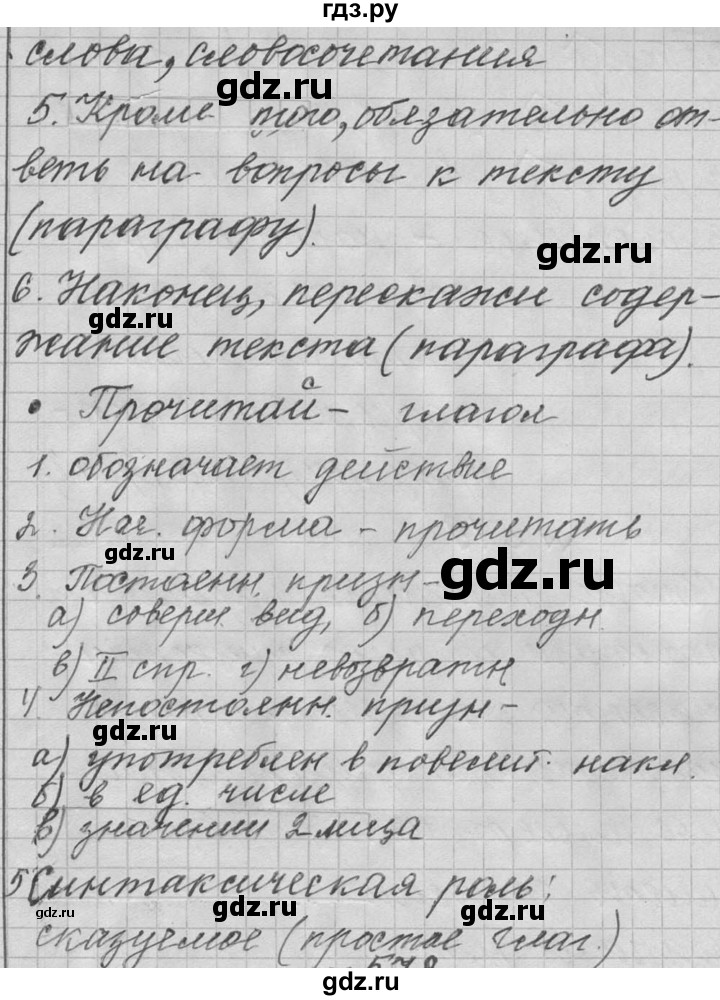 гдз.ру
слова, словосочетания
5. Кроме того, обязательно от-
веть на вопросы к тексту
(параграфу).
6. Наконец, перескажи содер-
жание текста (параграфа).
• Прочитай – глагол
1. обозначает действие
2. Нач. форма – прочитать
3. Постоянн. призн –
а) соверш. вид, б) переходн.
в) II спр. г) невозвратн
4. Непостоянн. призн –
а) употреблен в повелит. накл.
б) в ед. числе
в) значении 2 лица
5 Синтаксическая роль:
сказуемое (простое глаг.)
578
gdz.ru